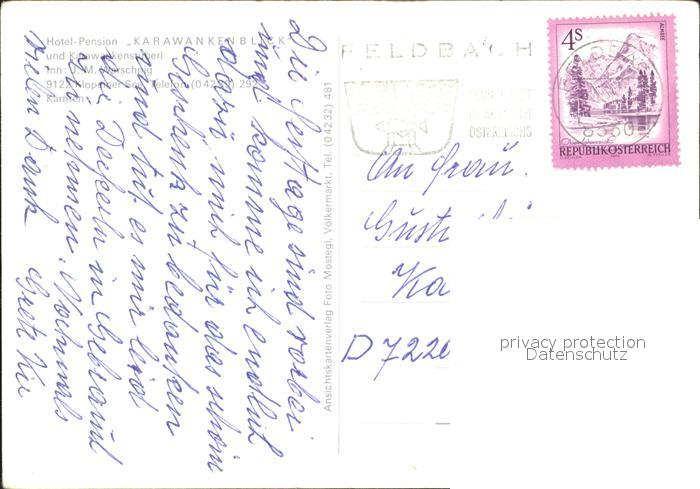 Hotel-Pension „KARAWANKENBLICK"
und Karawankenstüberl
Inh.: J. M.
9122 Klopeiner See, Telefon (04239) 29
Kärnten
Die Festtage sind vorbei
und komme ich endlich
dazu mich für das schöne
Geschenk zu bedanken
und tut es mir leid
die Deckerln in Gebrauch
zu nehmen. Nochmals
vielen Dank Greta
Ansichtskartenverlag Foto Mostegl, Völkermarkt, Tel. (04232) 481
FELDBACH
ÖSTERREICHS
4S
ALMSEE
REPUBLIK ÖSTERREICH
An Frau
Gust
Ka
D 7220
privacy protection
Datenschutz